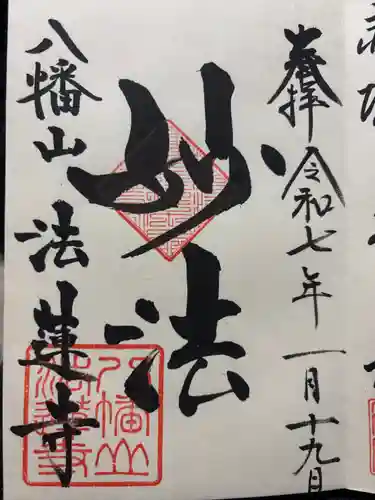 奉拝 令和七年 一月十九日
妙法
八幡山 法蓮寺
八幡山
法蓮寺